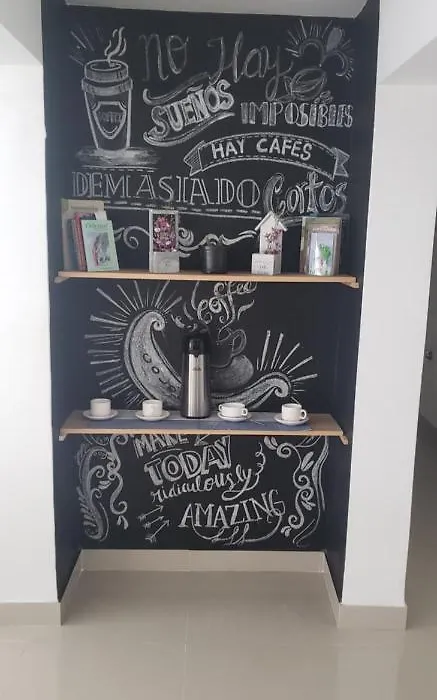 No Hay
SUEÑOS IMPOSIBLES
HAY CAFES
DEMASIADO Cortos
Coffee
MAKE
TODAY
ridiculously
AMAZING